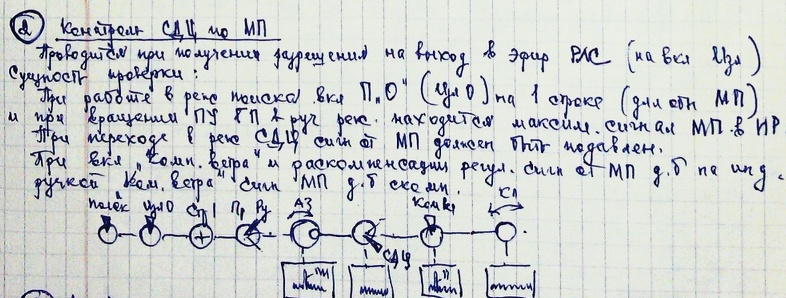 ② Контроль СДЦ по МП
Проводится при получении разрешения на выход в эфир РЛС (на вкл Изл)
Сущность проверки:
При работе в реж поиска вкл П„О" (ЦУ О) на 1 строке (для обн МП)
и при вращении ПУ БП в руч реж. находится максим. сигнал МП в ИР
При переходе в реж СДЦ сигн от МП должен быть подавлен.
При вкл „Комп. ветра" и раскомпенсации регул. сигн от МП д.б на инд.
ручкой „Ком. ветра" сигн МП д.б скомп.
поиск СП 1 Пр Ру АЗ СДЦ Ком в